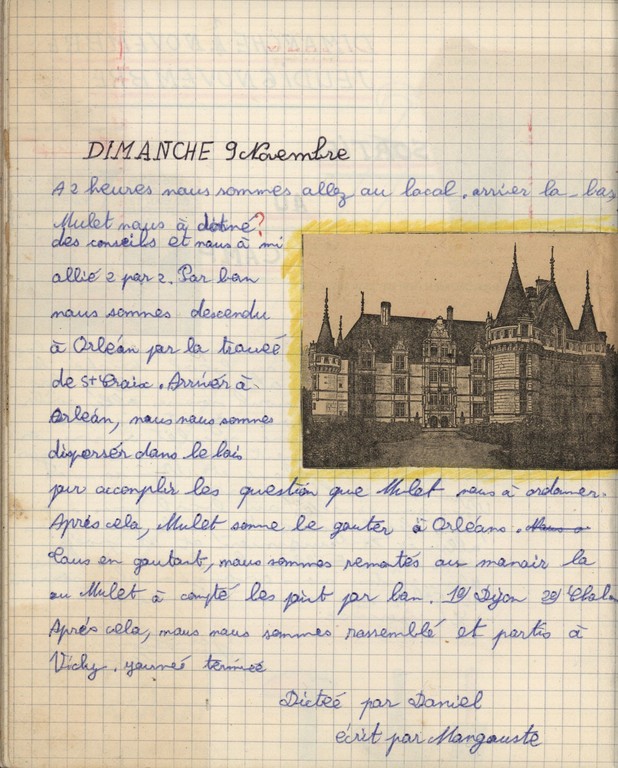 DIMANCHE 9 Novembre
A 2 heures nous sommes allez au local. arriver la-bas
Mulet nous à donné?
des conseils et nous à mi
allié 2 par 2. Par ban
nous sommes descendu
à Orléan par la traueé
de St Craix. Arriver à
Orleán, nous nous sommes
disperser dans le bois
pur accomplir les question que Mulet nous à ordonner.
Aprés cela, Mulet sonne le goutér à Orléans.
Tous en goutant, nous sommes remontés au manoir la
ou Mulet à compté les point par ban. 1e/ Dijon 2e/ Chalo
Aprés cela, nous nous sommes rassemblé et partis à
Vichy. yourneé termineé
Dicteé par Daniel
écrit par Mangouste